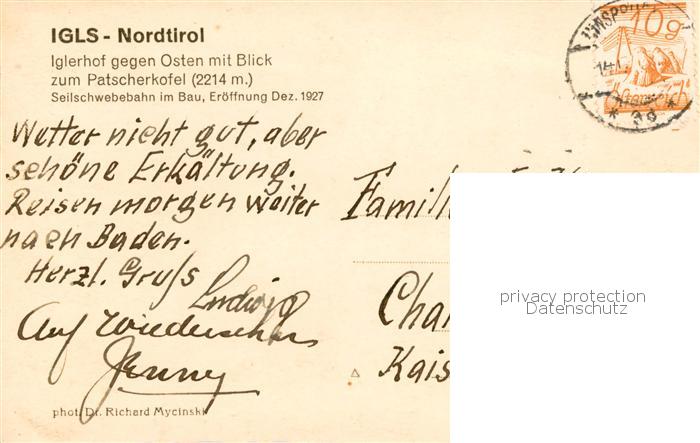 IGLS - Nordtirol
Iglerhof gegen Osten mit Blick
zum Patscherkofel (2214 m.)
Seilschwebebahn im Bau, Eröffnung Dez. 1927
10g
Wetter nicht gut, aber
schöne Erkältung.
Reisen morgen weiter
nach Baden.
Herzl. Gruss
Ludwig
Auf Wiedersehen
Jenny
phot. Dr. Richard Mycinski
Famili
Char
Kais
privacy protection
Datenschutz